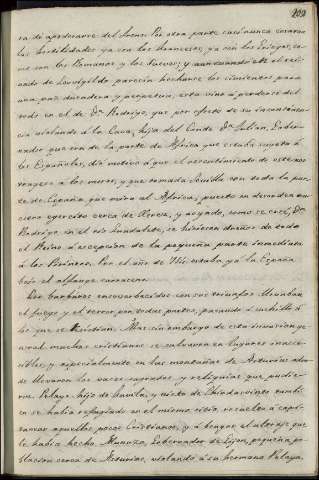 202
ra de apoderarse del Trono. Por otra parte casi nunca cesaron
las hostilidades ya con los Franceses, ya con los Griegos, co-
mo con los Romanos y los Suevos; y aunque en el rei-
nado de Leovigildo parecia hecharse los cimientos para
una paz duradera y perpetua, esta vino á perderse del
todo en el de Dn. Rodrigo, que por efecto de su incontinen-
cia violando á la Cava, hija del Conde Dn. Julian, Gober-
nador que era de la parte de Africa que estaba sugeta á
los Españoles, dió motivo á que el resentimiento de este con-
dugera á los moros, y que tomada Sevilla con toda la par-
te de España que mira al Africa, puesto en derrota nu-
estro egercito cerca de Xerez, y aogado, como se cree, Dn.
Rodrigo en el rio Guadalete, se hicieron dueños de todo
el Reino á excepcion de la pequeña parte inmediata
á los Pirineos. Por el año de 714 estaba yá la España
bajo el alfange sarraceno.
Los barbaros ensoverbecidos con sus triunfos llevaban
el fuego y el terror por todas partes, pasando á cuchillo á
los que se resistian. Mas sin embargo de esta incursion ge-
neral muchos cristianos se salvaron en lugares inacce-
sibles, y especialmente en las montañas de Asturias adon-
de llevaron los vasos sagrados y reliquias que pudie-
ron. Pelayo hijo de Favila, y nieto de Chindasvinto tambi-
en se habia refugiado en el mismo sitio, resuelto á capi-
tanear aquellos pocos Cristianos, y á bengar el ultraje que
le habia hecho Munuza, Gobernador de Gijon, pequeña po-
blacion cerca de Asturias, violando á su hermana. Pelayo,